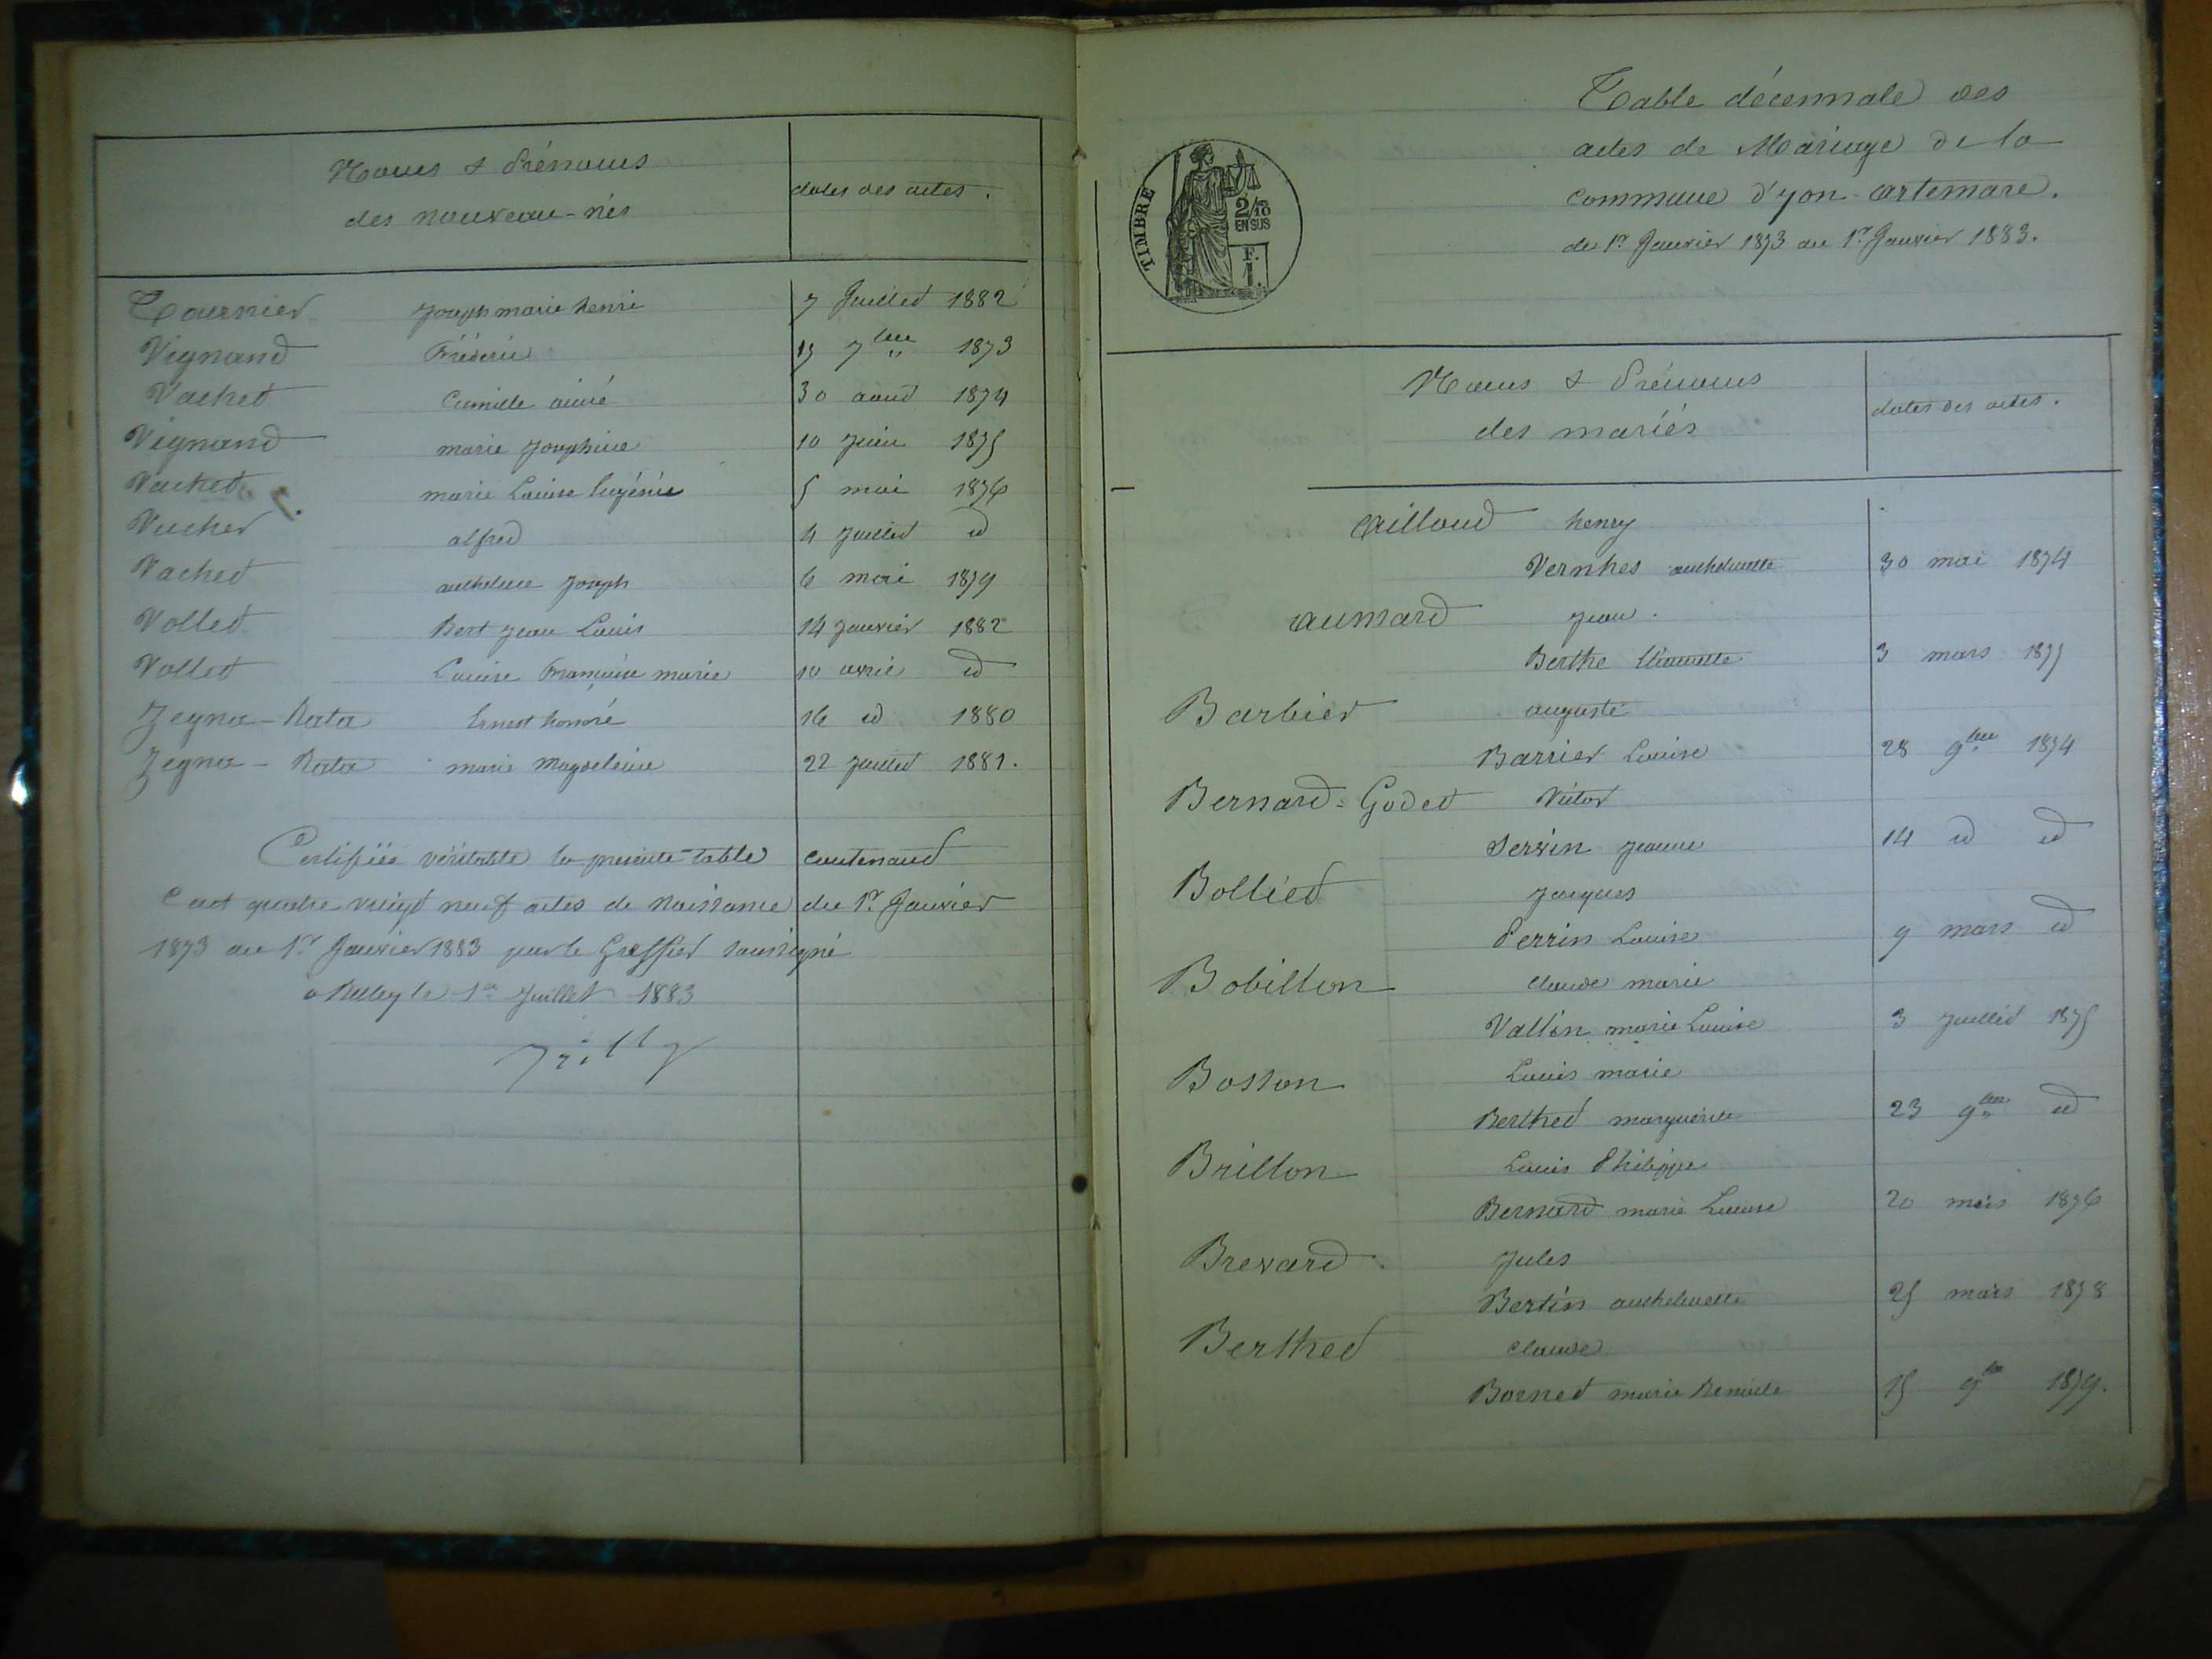 Noms & Prénoms
des nouveau-nés
dates des actes.
Tournier Joseph marie henri 7 Juillet 1882
Vignand Fréderic 15 7bre 1873
Vachet Camille aimé 30 aout 1874
Vignand marie Josephine 10 Juin 1875
Vachet marie Louise Eugénie 5 mai 1876
Vucher alfred 4 Juillet id
Vachet anthelme Joseph 6 mai 1879
Vollet Bert Jean Louis 14 Janvier 1882
Vollet Louise Françoise marie 10 avril id
Zegna-Rata Ernest honoré 16 id 1880
Zegna-Rata marie Magdeleine 22 Juillet 1881.
Certifiée véritable la presente table contenant
Cent quatre vingt neuf actes de Naissance du 1er Janvier
1873 au 1er Janvier 1883 par le Greffier soussigné
a Belley le 1er Juillet 1883
Table décennale des
actes de Mariage de la
commune d'yon-artemare.
du 1er Janvier 1873 au 1er Janvier 1883.
TIMBRE
2/10
EN SUS
F.
1.
Noms & Prénoms
des mariés
dates des actes.
Ailloud henry
Vernhes anthelmette 30 mai 1874
Aumard Jean.
Berthe 3 mars 1875
Barbier auguste
Barrier Louise 28 9bre 1874
Bernard-Godet Victor
Servin Jeanne 14 id id
Bolliet Jacques
Perrin Louise 9 mars id
Bobillon claude marie
Vallin marie Louise 3 Juillet 1875
Bosson Louis marie
Berthet marguerite 23 9bre id
Brillon Louis Philippe
Bernard marie Louise 20 mars 1876
Brevard Jules
Bertin anthelmette 25 mars 1878
Berthet claude
Bornet marie Benoite 15 9bre 1879.